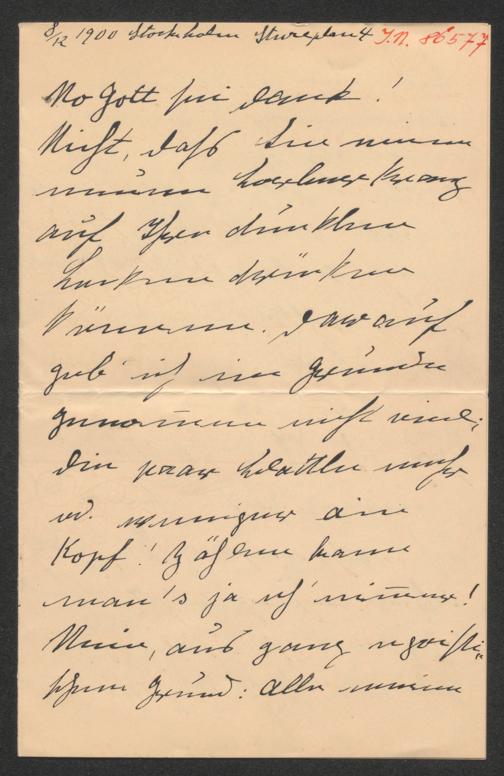 8/12 1900 Stockholm Stureplan 4 J.N. 86577
No Gott sei dank!
Nicht, daß Sie einen
neuen Lorbeer Kranz
auf Ihre dunklen
Locken drücken
können. Darauf
geb' ich im Grunde
genom̅en nicht viel;
die paar Blättle mehr
od. weniger am
Kopf! Zählen kann
man's ja eh' nim̅er!
Nein, aus ganz egoisti-
schem Grund: alle meine